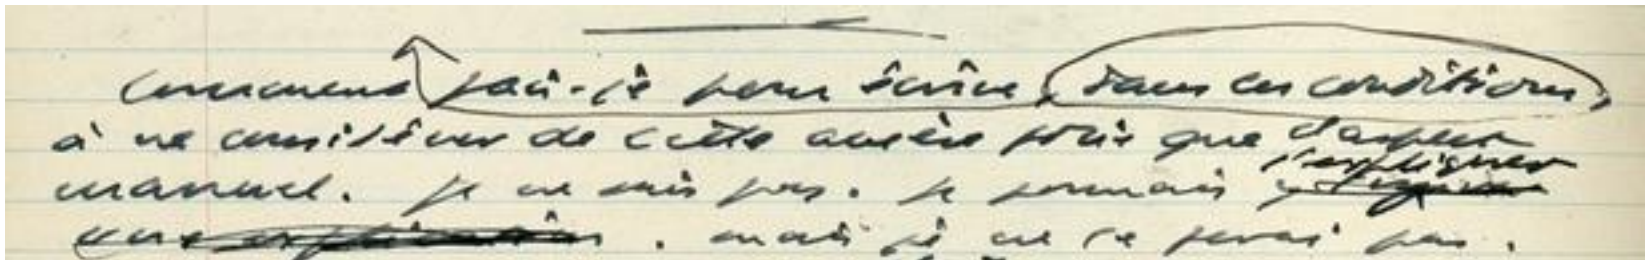 Comment fais-je pour écrire, dans ces conditions,
à ne considérer de cette amère joie que l'aspect
manuel. Je ne sais pas. Je pourrais l'expliquer
. mais je ne le ferai pas.